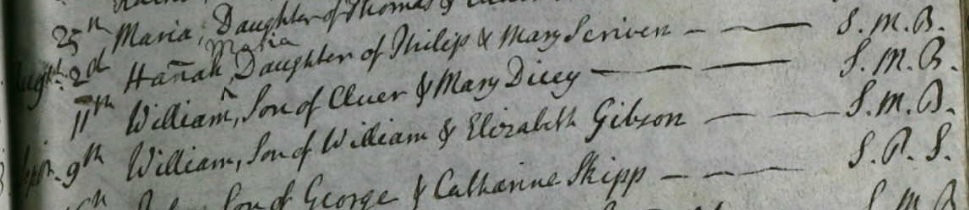 25th Maria, Daughter of Thomas &
Augt. 2d Hañah Maria Daughter of Philip & Mary Scriven — — S. M. B.
11th William, Son of Cluer & Mary Dicey — — S. M. B.
Sept. 9th William, Son of William & Elizabeth Gibson — — S. M. B.
Son of George & Catharine Skipp — — S. P. S.
S. M. B.